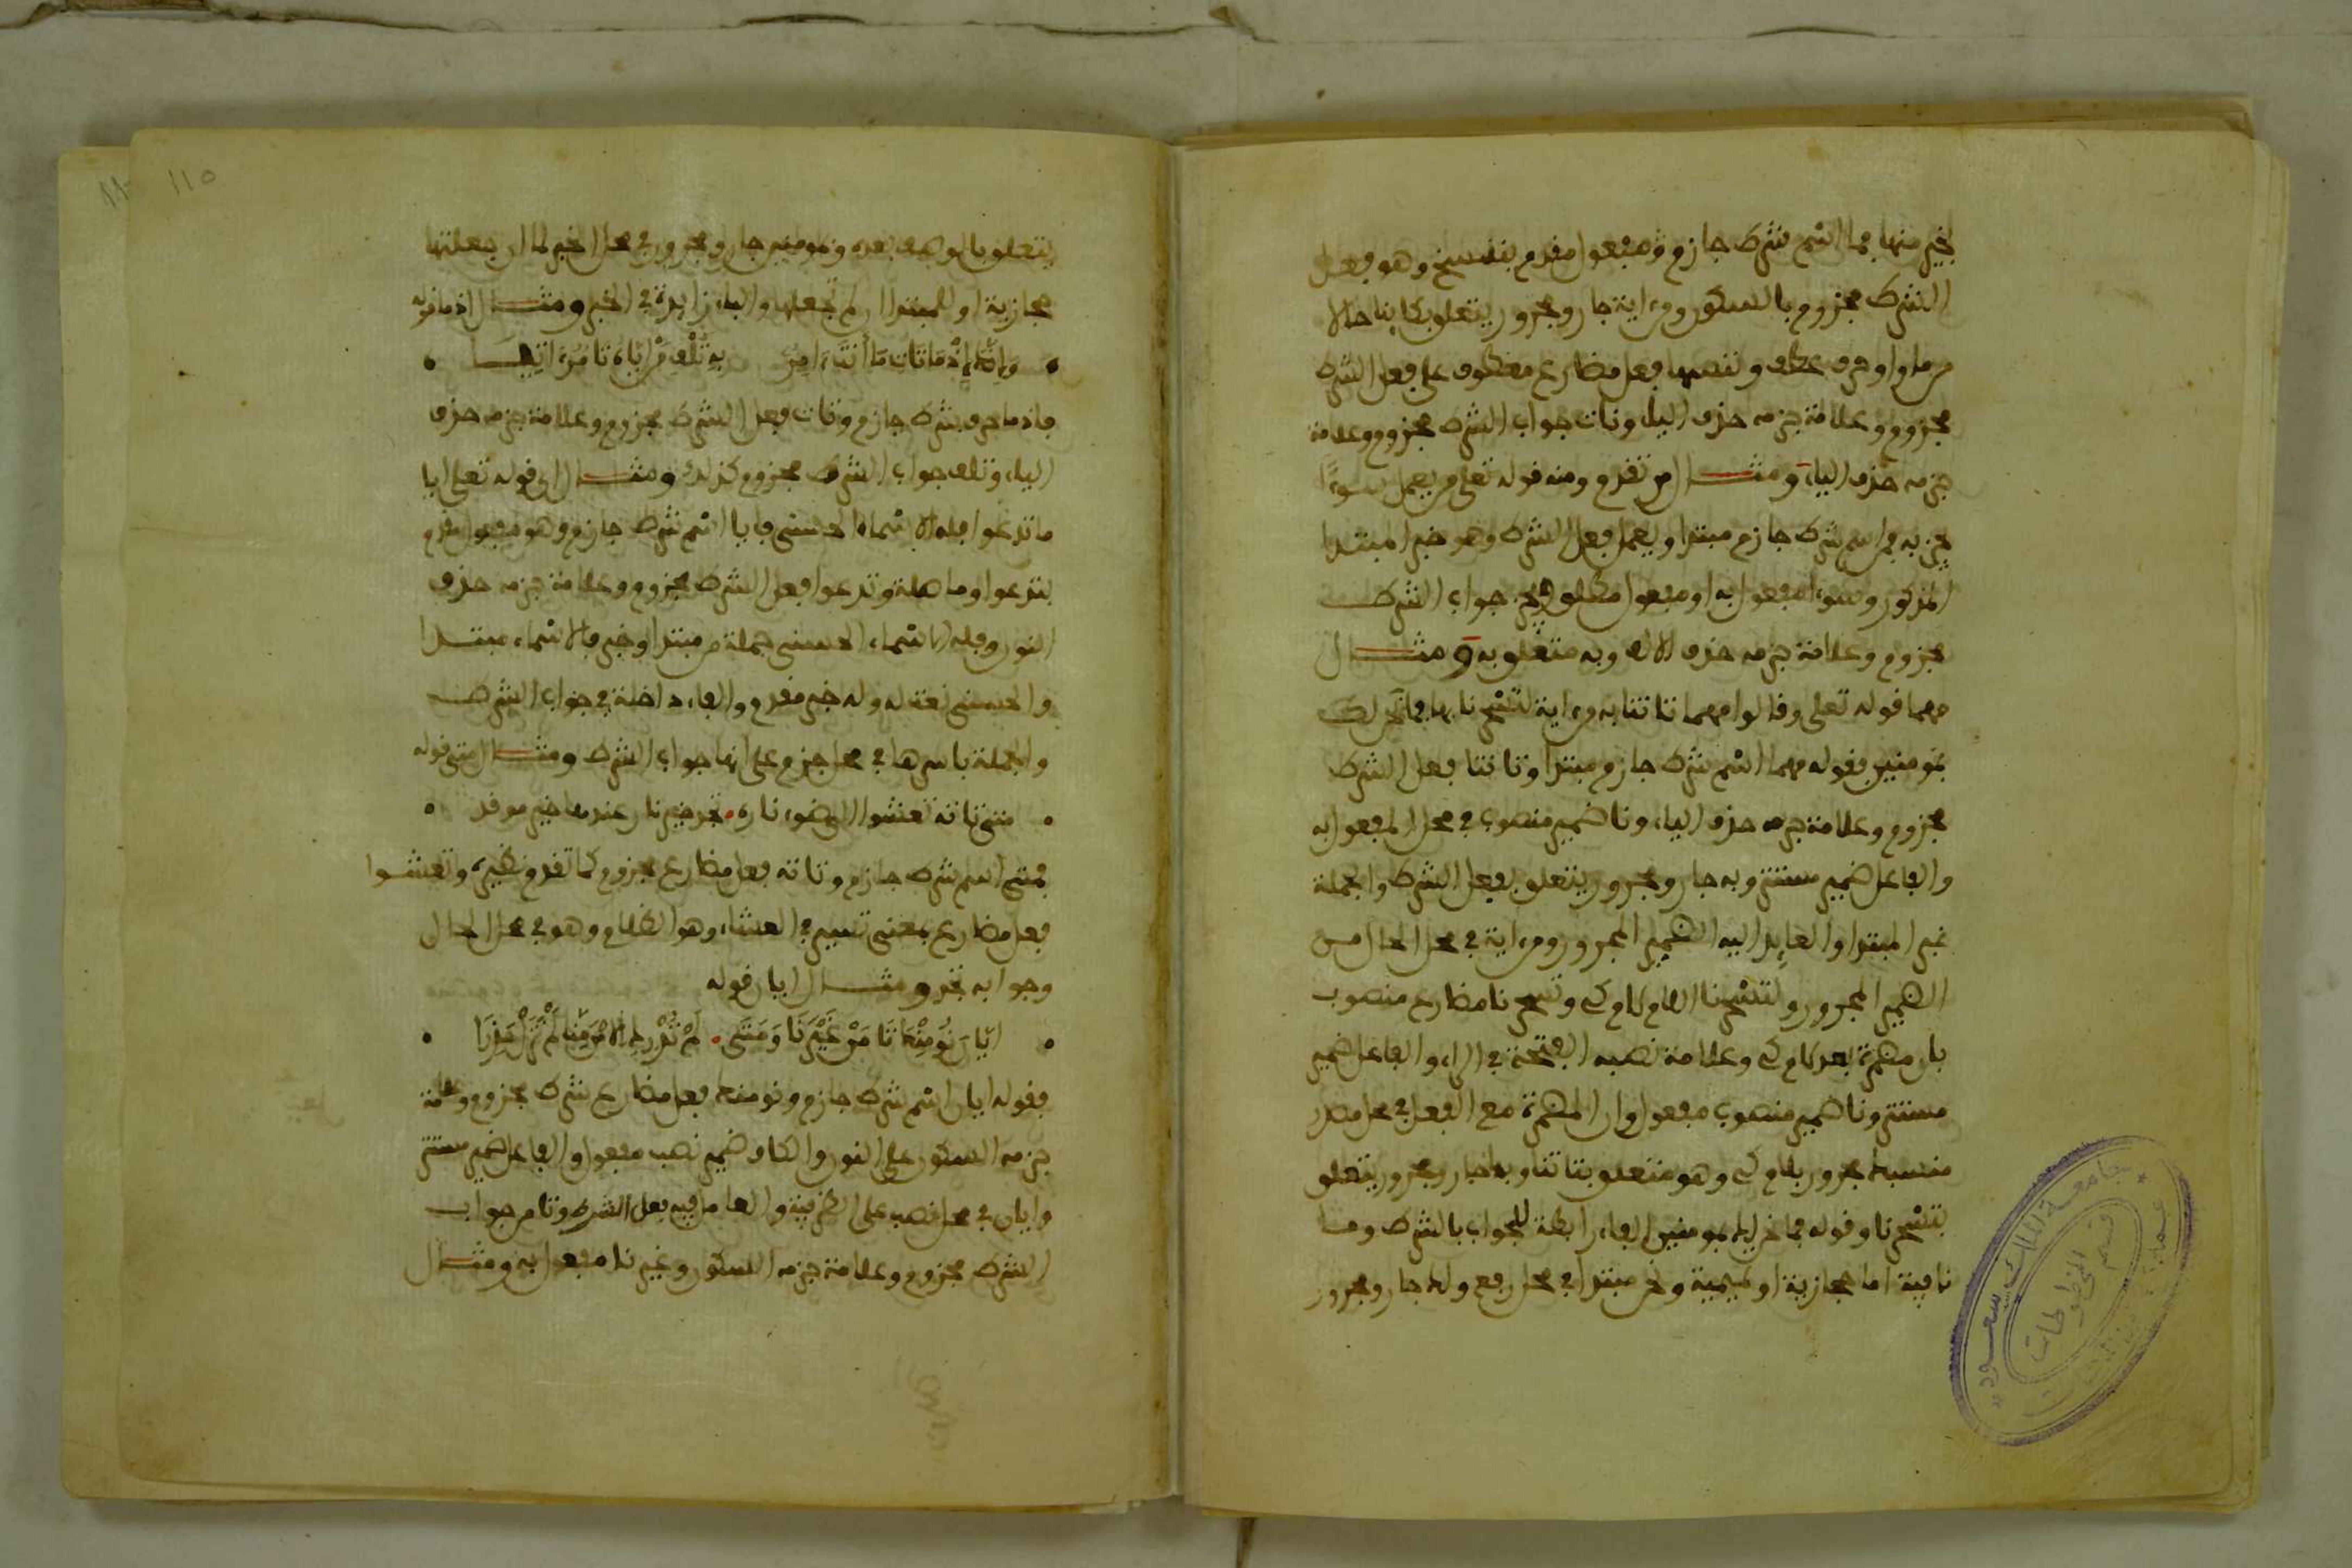 بخير منها فما اسم شرط جازم ومفعول مقدم بننسخ وهو فعل
الشرط مجزوم بالسكون ومن اية جار ومجرور يتعلق بكاينا حالا
من ما واو حرف عطف وننسها فعل مضارع معطوف على فعل الشرط
مجزوم وعلامة جزمه حذف الياء ونات جواب الشرط مجزوم وعلامة
جزمه حذف الياء ومثال من تقدم ومنه قوله تعلى من يعمل سوءا
يجز به فمن اسم شرط جازم مبتدا ويعمل فعل الشرط وهو خبر المبتدا
المذكور وسوءا مفعول به او مفعول مطلق ويجز جواب الشرط
مجزوم وعلامة جزمه حذف الالف وبه متعلق به ومثال
مهما قوله تعلى وقالوا مهما تاتنا به من اية لتسحرنا بها فما نحن لك
بمومنين فقوله مهما اسم شرط جازم مبتدا وتاتنا فعل الشرط
مجزوم وعلامة جزمه حذف الياء ونا ضمير منصوب في محل المفعول به
والفاعل ضمير مستتر وبه جار ومجرور يتعلق بفعل الشرط والجملة
خبر المبتدا والعايد اليه الضمير المجرور ومن اية في محل الحال من
الضمير المجرور ولتسحرنا اللام لام كي وتسحرنا مضارع منصوب
بان مضمرة بعد لام كي وعلامة نصبه الفتحة في الراء والفاعل ضمير
مستتر ونا ضمير منصوب مفعول وان المضمرة مع الفعل في محل مصدر
منسبك مجرور بلام كي وهو متعلق بتاتنا وبها جار ومجرور يتعلق
بتسحرنا وقوله فما نحن لك بمومنين الفاء رابطة للجواب بالشرط وما
نافية اما حجازية او تميمية ونحن مبتدا في محل رفع ولك جار ومجرور
جامعة الملك سعود
قسم المخطوطات
١١٥
يتعلق بالوصف بعده وبمومنين جار ومجرور في محل الخبر لما ان جعلتها
حجازية او للمبتدا ان لم تجعلها والباء زايدة في الخبر ومثال اذما قوله
وَإنّكَ إِذْمَا تَاتِ مَا أَنتَ ءَامِرٌ بِهِ تُلْفِ مَنْ إيّاهُ تَامُرُ ءاتِيَا
فاذما حرف شرط جازم وتات فعل الشرط مجزوم وعلامة جزمه حذف
الياء وتلف جواب الشرط مجزوم كذلك ومثال اي قوله تعلى ايا
ما تدعوا فله الاسماء الحسنى فايا اسم شرط جازم وهو مفعول مقدم
بتدعوا وما صلة وتدعوا فعل الشرط مجزوم وعلامة جزمه حذف
النون وفله الاسماء الحسنى جملة من مبتدا وخبر فالاسماء مبتدا
والحسنى نعت له وله خبر مقدم والفاء داخلة في جواب الشرط
والجملة باسرها في محل جزم على انها جواب الشرط ومثال متى قوله
متى تاته تعشوا الى ضوء ناره تجد خير نار عندها خير موقد
فمتى اسم شرط جازم وتاته فعل مضارع مجزوم كما تقدم نظيره وتعشوا
فعل مضارع بمعنى تسير في العشاء وهو الظلام وهو في محل الحال
وجوابه تجد ومثال ايان قوله
ايّانَ نُومِنْكَ تَامَنْ غَيْرَنَا وَمَتَى لَمْ تُدْرِكِ الامْنَ مِنّا لَمْ تَزَلْ حَذِرَا
فقوله ايان اسم شرط جازم ونومنك فعل مضارع شرط مجزوم وعلامة
جزمه السكون على النون والكاف ضمير نصب مفعول والفاعل ضمير مستتر
وايان في محل نصب على الظرفية والعامل فيه فعل الشرط وتامن جواب
الشرط مجزوم وعلامة جزمه السكون وغيرنا مفعول به ومثال